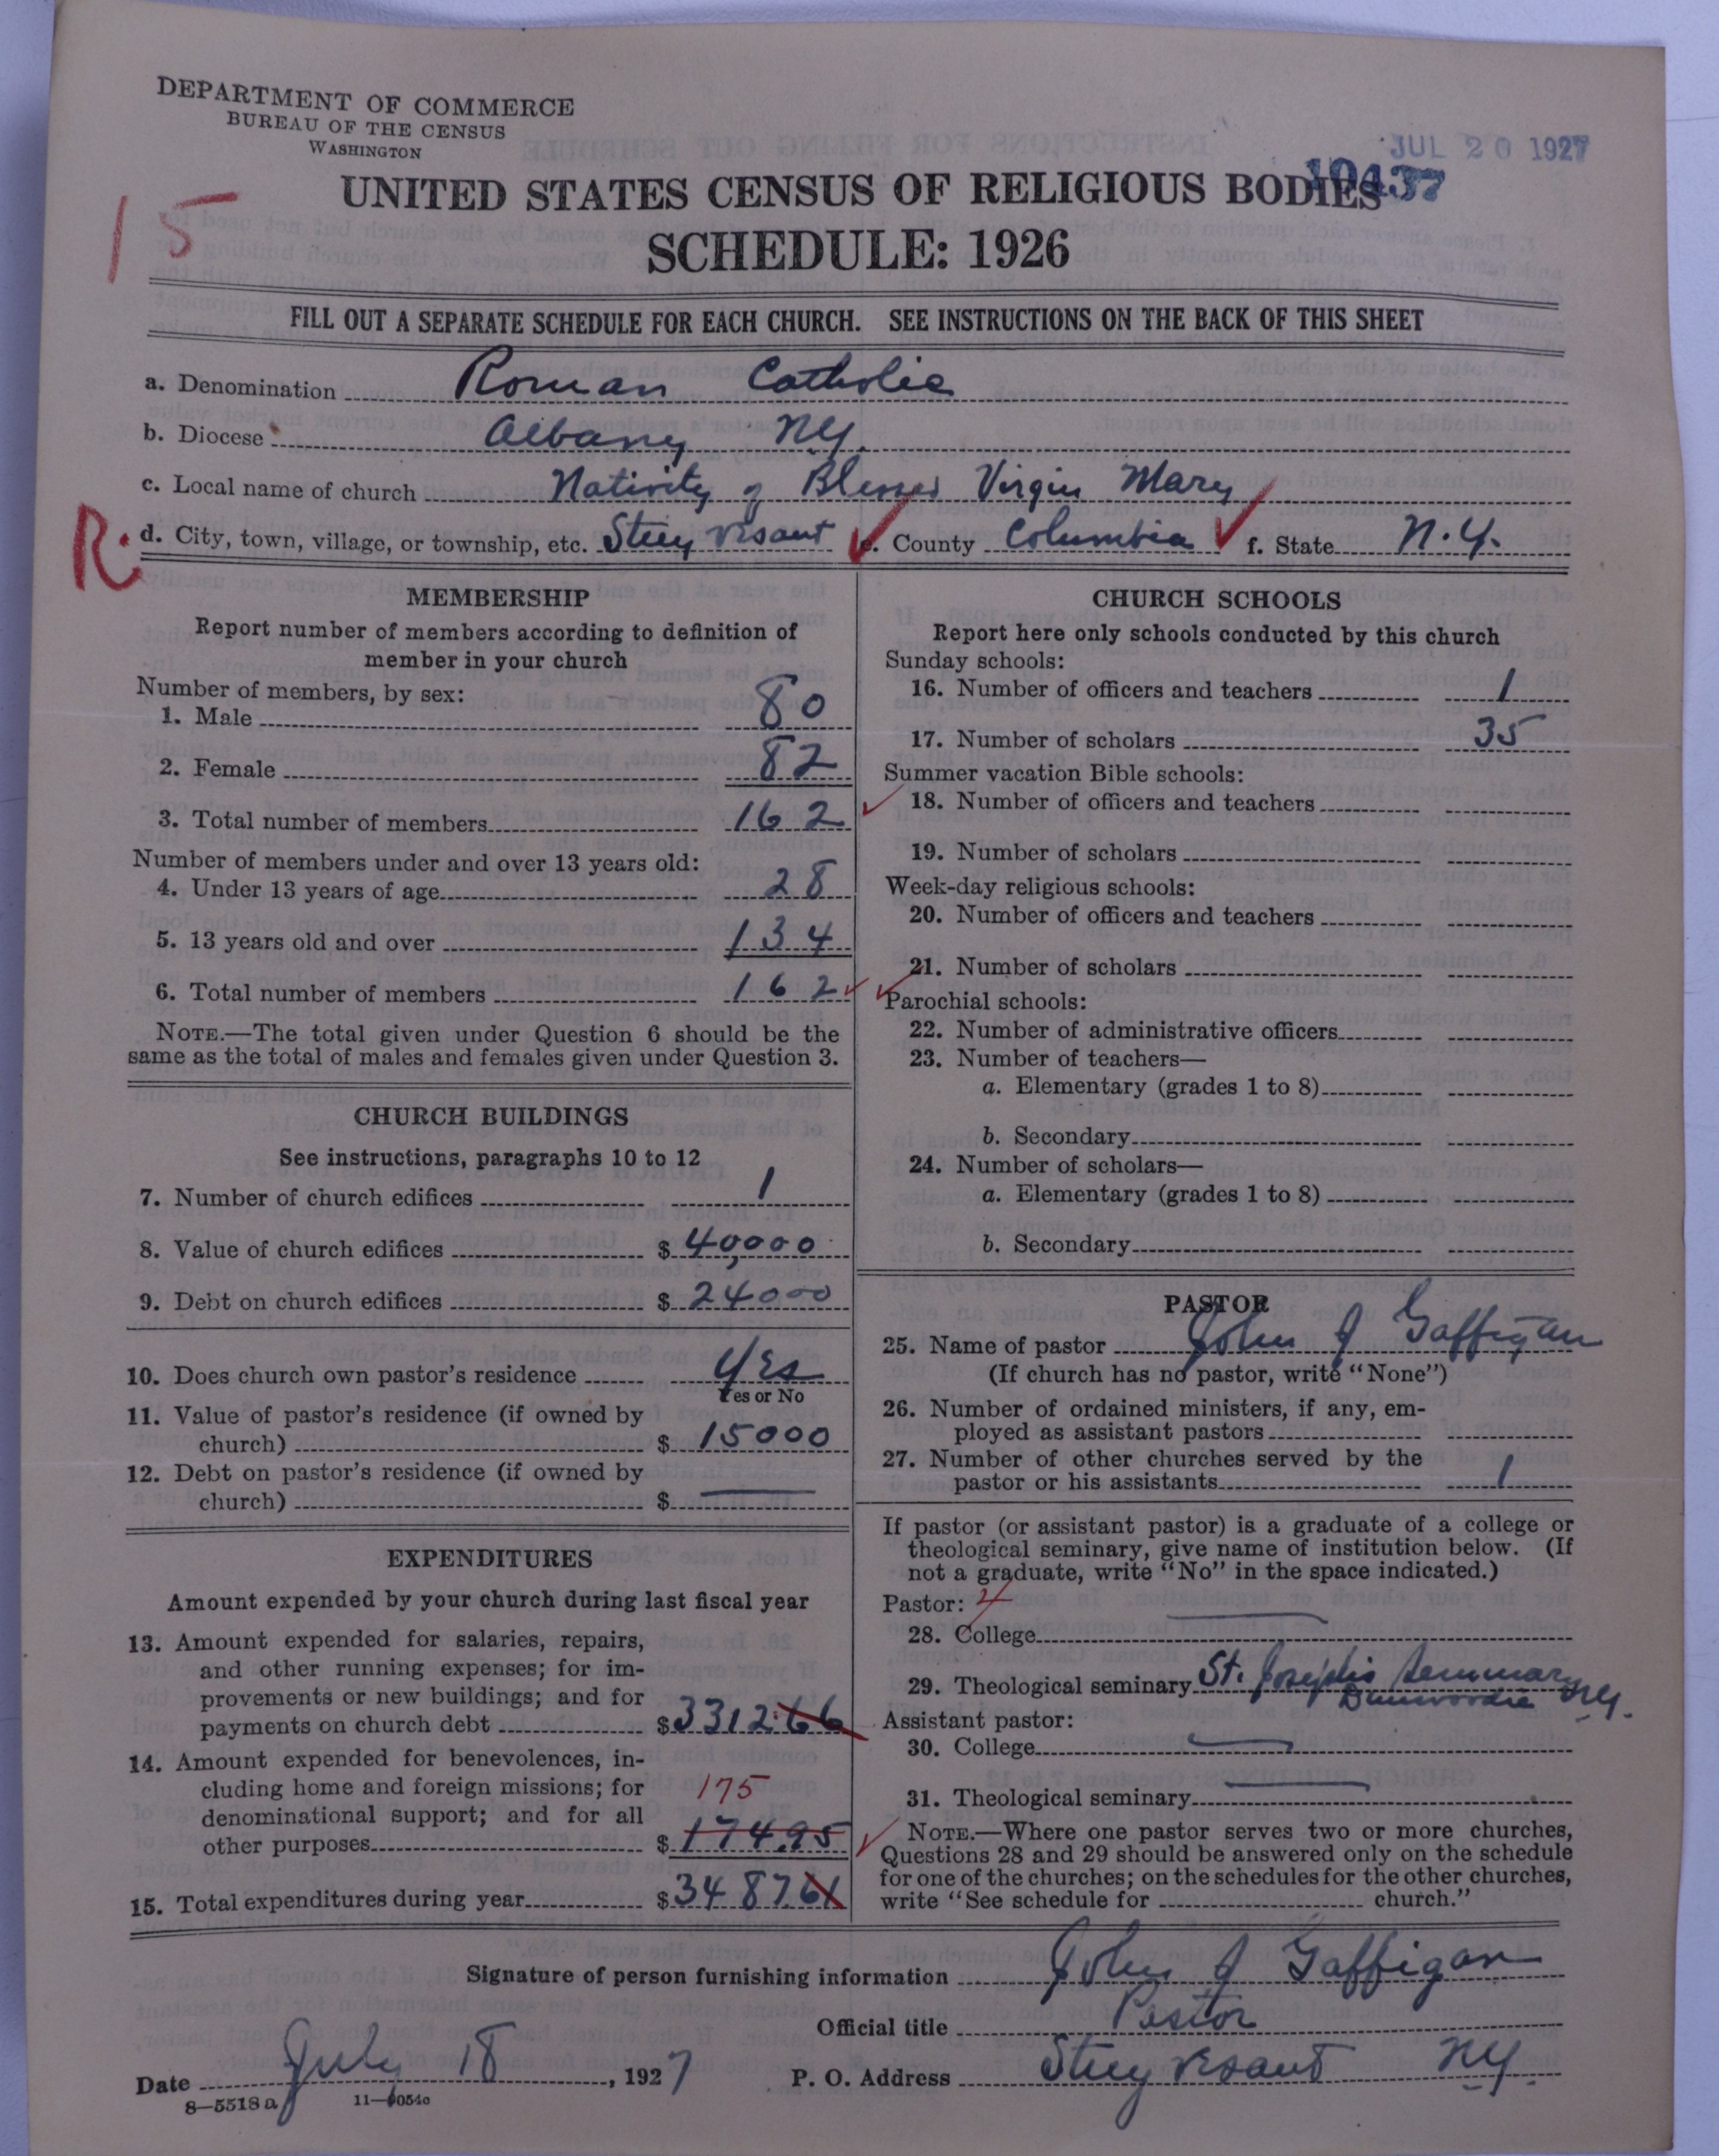 DEPARTMENT OF COMMERCE
BUREAU OF THE CENSUS
WASHINGTON
JUL 20 1927
15
UNITED STATES CENSUS OF RELIGIOUS BODIES
SCHEDULE: 1926
FILL OUT A SEPARATE SCHEDULE FOR EACH CHURCH. SEE INSTRUCTIONS ON THE BACK OF THIS SHEET
a. Denomination Roman Catholic
b. Diocese Albany N.Y.
c. Local name of church Nativity of Blessed Virgin Mary
R. d. City, town, village, or township, etc. Stuyvesant e. County Columbia f. State N.Y.
MEMBERSHIP
Report number of members according to definition of
member in your church
Number of members, by sex:
1. Male 80
2. Female 82
3. Total number of members 162
Number of members under and over 13 years old:
4. Under 13 years of age 28
5. 13 years old and over 134
6. Total number of members 162
NOTE.—The total given under Question 6 should be the
same as the total of males and females given under Question 3.
CHURCH BUILDINGS
See instructions, paragraphs 10 to 12
7. Number of church edifices 1
8. Value of church edifices $ 40,000
9. Debt on church edifices $ 24000
10. Does church own pastor's residence Yes
Yes or No
11. Value of pastor's residence (if owned by
church) $ 15000
12. Debt on pastor's residence (if owned by
church) $ —
EXPENDITURES
Amount expended by your church during last fiscal year
13. Amount expended for salaries, repairs,
and other running expenses; for im-
provements or new buildings; and for
payments on church debt $ 3312.66
14. Amount expended for benevolences, in-
cluding home and foreign missions; for
175
denominational support; and for all
other purposes $ 174.95
15. Total expenditures during year $ 3487.61
CHURCH SCHOOLS
Report here only schools conducted by this church
Sunday schools:
16. Number of officers and teachers 1
17. Number of scholars 35
Summer vacation Bible schools:
18. Number of officers and teachers
19. Number of scholars
Week-day religious schools:
20. Number of officers and teachers
21. Number of scholars
Parochial schools:
22. Number of administrative officers
23. Number of teachers—
a. Elementary (grades 1 to 8)
b. Secondary
24. Number of scholars—
a. Elementary (grades 1 to 8)
b. Secondary
PASTOR
25. Name of pastor John J Gaffigan
(If church has no pastor, write "None")
26. Number of ordained ministers, if any, em-
ployed as assistant pastors
27. Number of other churches served by the
pastor or his assistants 1
If pastor (or assistant pastor) is a graduate of a college or
theological seminary, give name of institution below. (If
not a graduate, write "No" in the space indicated.)
Pastor:
28. College —
29. Theological seminary St. Joseph's Seminary
Dunwoodie N.Y.
Assistant pastor:
30. College —
31. Theological seminary —
NOTE.—Where one pastor serves two or more churches,
Questions 28 and 29 should be answered only on the schedule
for one of the churches; on the schedules for the other churches,
write "See schedule for church."
Signature of person furnishing information John J Gaffigan
Official title Pastor
Date July 18, 1927 P. O. Address Stuyvesant N.Y.
8—5518 a